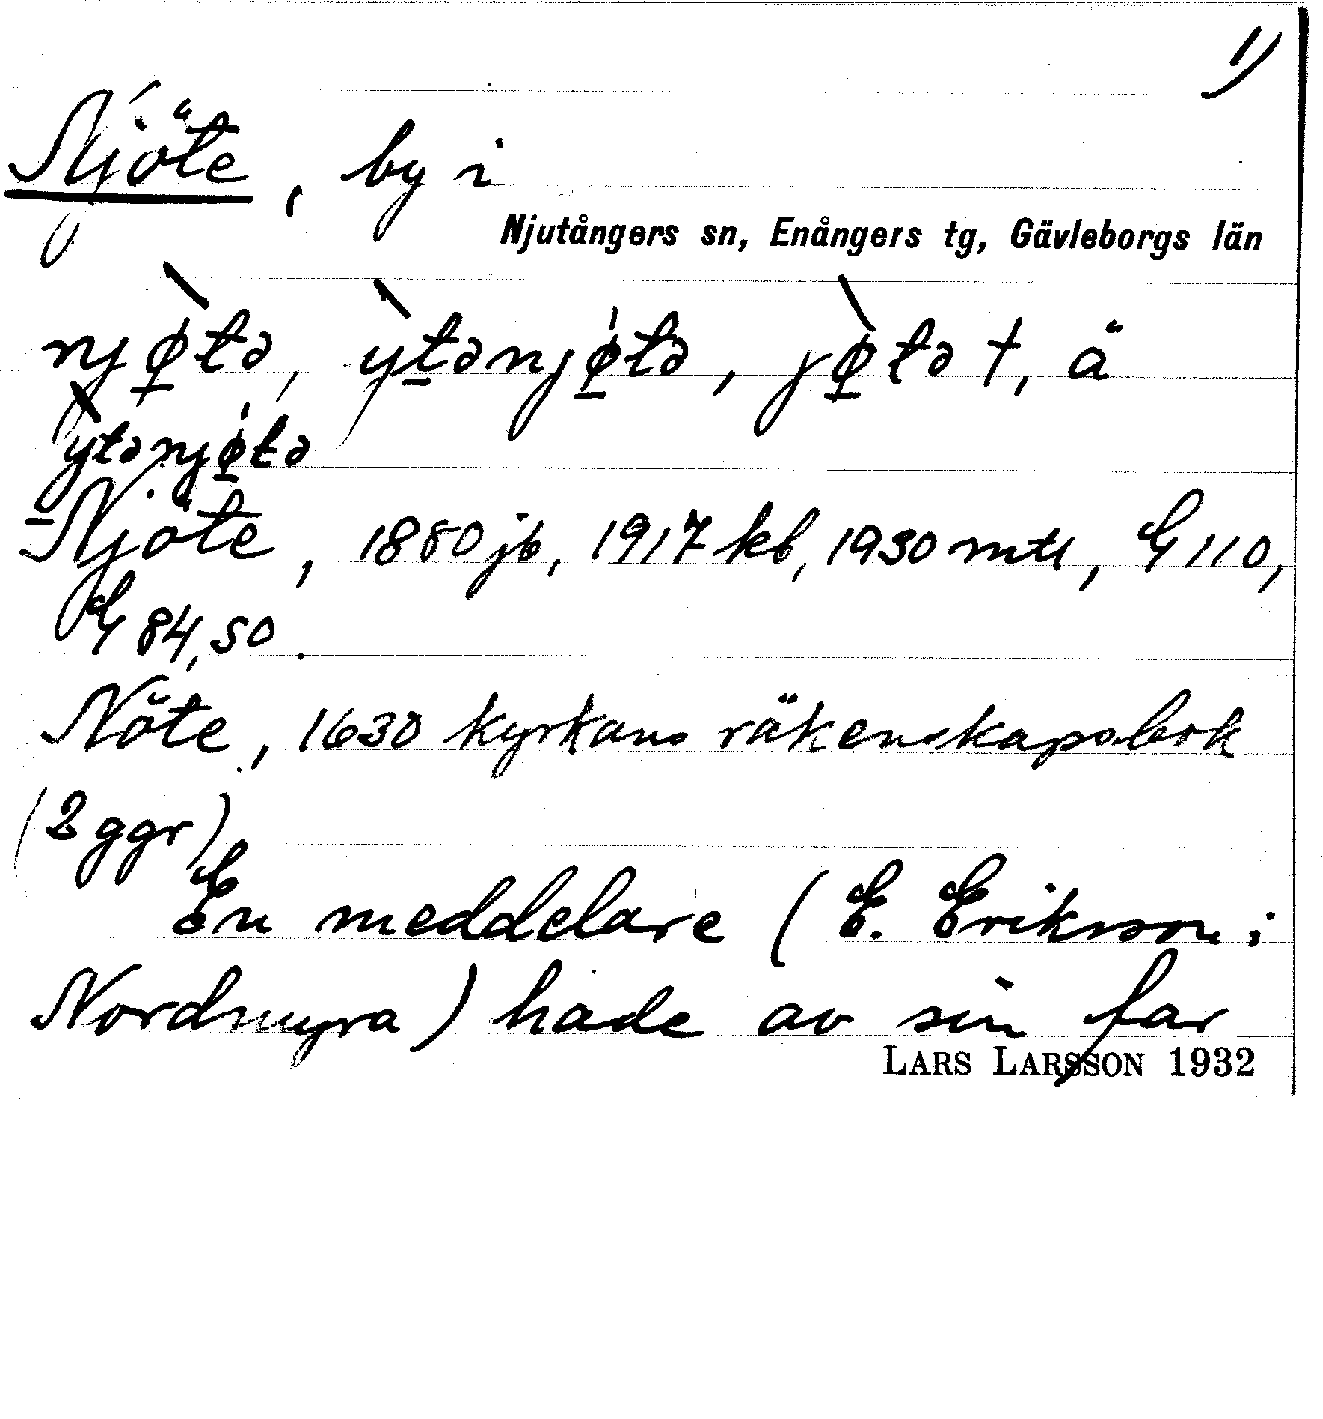 1)
Njöte, by i
Njutångers sn, Enångers tg, Gävleborgs län
njø̀tə, ỳtənjǿtə, jø̀tə †, ä
ỳtənjǿtə
Njöte, 1880 jb, 1917 kb, 1930 mtl, G 110,
G 84, 50.
Nöte, 1630 kyrkans räkenskapsbok
(2 ggr)
En meddelare (E. Eriksson i
Nordmyra) hade av sin far
LARS LARSSON 1932